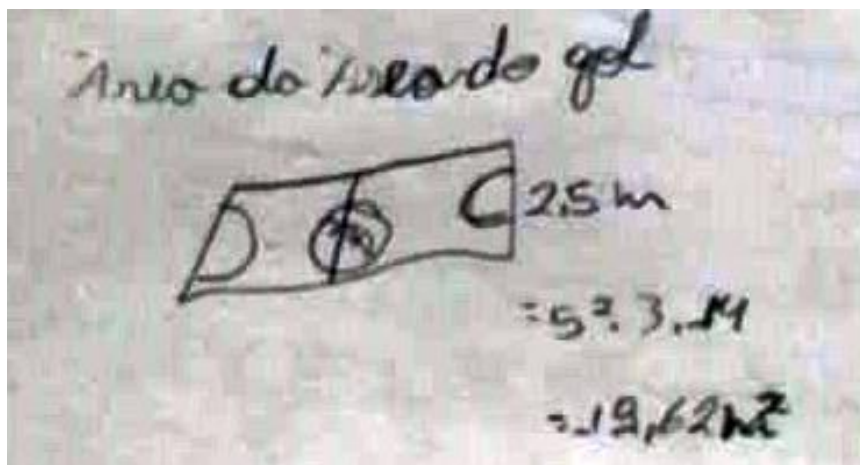 Area da Area do gol
2,5 m
=5². 3,14
=19,62m²